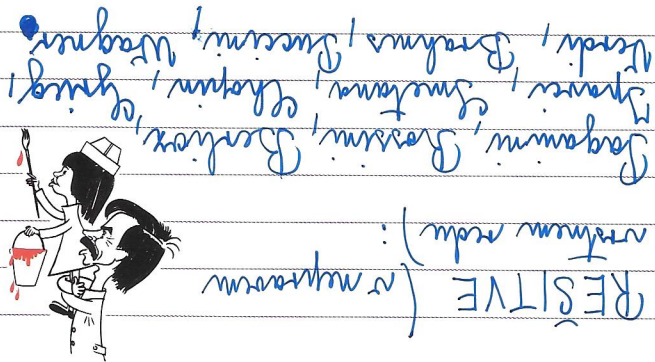 REŠITVE (v nepravem
vrstnem redu):
Paganini, Rossini, Berlioz,
Ipavci, Smetana, Chopin, Grieg,
Verdi, Brahms, Puccini, Wagner